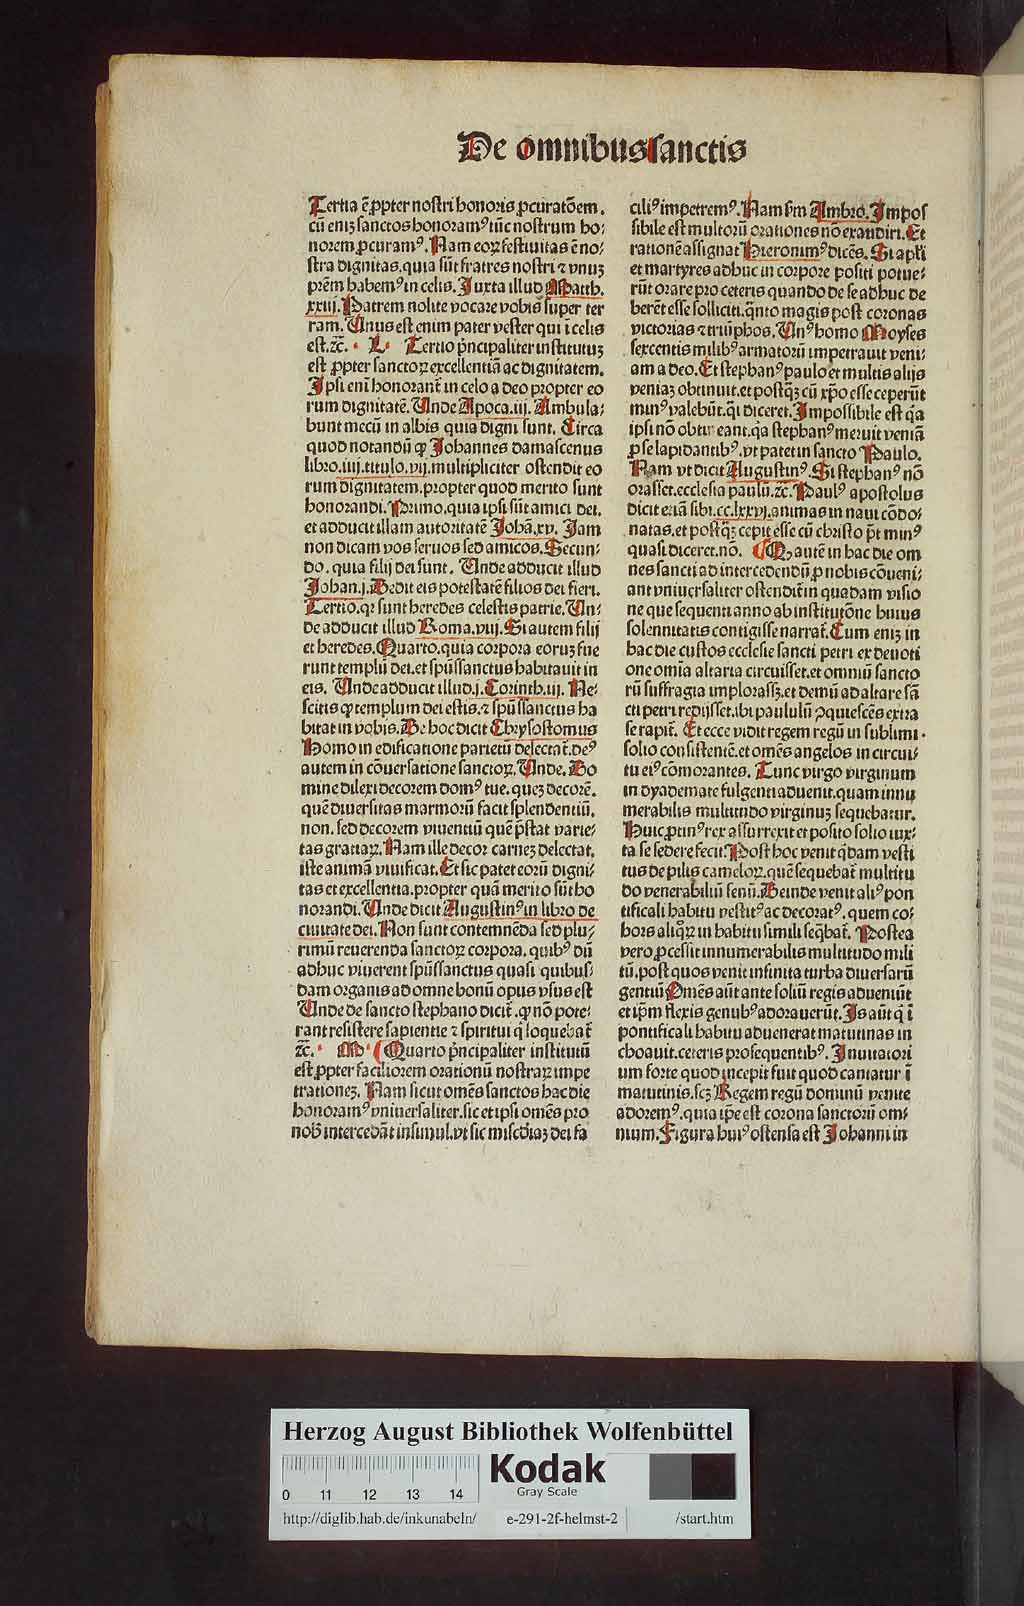 De omnibus sanctis
Tertia ē ꝓpter nostri honoris ꝓcuratōem.
cū eniꝫ sanctos honoramꝰ tūc nostrum ho⸗
norem ꝓcuramꝰ. Nam eoꝝ festiuitas ē no⸗
stra dignitas. quia sūt fratres nostri ⁊ vnuꝫ
prēm habemꝰ in celis. Juxta illud Matth.
xxiij. Patrem nolite vocare vobis super ter
ram. Unus est enim pater vester qui ī celis
est. ⁊c̄. L Tertio p̄ncipaliter institutuꝫ
est ꝓpter sanctoꝝ excellentiā ac dignitatem.
Ipsi enī honorant̄ in celo a deo propter eo
rum dignitatē. Unde Apoca. iij. Ambula⸗
bunt mecū in albis quia digni sunt. Circa
quod notandū ꝙ Johannes damascenus
libro. iiij. titulo. vij. multipliciter ostendit eo
rum dignitatem. propter quod merito sunt
honorandi. Primo. quia ipsi sūt amici dei.
et adducit illam autoritatē Johā. xv. Jam
non dicam vos seruos sed amicos. Secun⸗
do. quia filij dei sunt. Unde adducit illud
Johan. j. Dedit eis potestatē filios dei fieri.
Tertio. qꝛ sunt heredes celestis patrie. Un⸗
de adducit illud Roma. viij. Si autem filij
et heredes. Quarto. quia corpora eoruꝫ fue
runt templū dei. et spūssanctus habitauit in
eis. Unde adducit illud. j. Corinth. iij. Ne⸗
scitis ꝙ templum dei estis. ⁊ spūssanctus ha
bitat in vobis. De hoc dicit Chrysostomus
Homo in edificatione parietū delectat̄. deꝰ
autem in cōuersatione sanctoꝝ. Unde. Do
mine dilexi decorem domꝰ tue. queꝫ decorē.
quē diuersitas marmorū facit splendentiū.
non. sed decorem viuentiū quē p̄stat varie⸗
tas gratiaꝝ. Nam ille decor carneꝫ delectat.
iste animā viuificat. Et sic patet eorū digni⸗
tas et excellentia. propter quā merito sūt ho
norandi. Unde dicit Augustinꝰ in libro de
ciuitate dei. Non sunt contemnēda sed plu⸗
rimū reuerenda sanctoꝝ corpora. quibꝰ dū
adhuc viuerent spūssanctus quasi quibus⸗
dam organis ad omne bonū opus vsus est
Unde de sancto stephano dicit̄. ꝙ nō pote⸗
rant resistere sapientie ⁊ spiritui q̄ loquebat̄
⁊c̄. M Quarto p̄ncipaliter institutū
est ꝓpter faciliorem orationū nostraꝝ impe
trationeꝫ. Nam sicut omēs sanctos hac die
honoramꝰ vniuersaliter. sic et ipsi omēs pro
nob̄ intercedāt insimul. vt sic misc̄diaꝫ dei fa
ciliꝰ impetremꝰ. Nam scd̄m Ambro. Impos
sibile est multorū orationes nō exaudiri. Et
rationē assignat Hieronimꝰ dicēs. Si apl̄i
et martyres adhuc in corpore positi potue⸗
rūt orare pro ceteris quando de se adhuc de
berēt esse solliciti. q̄nto magis post coronas
victorias ⁊ triūphos. Unꝰ homo Moyses
sexcentis milibꝰ armatorū impetrauit veni⸗
am a deo. Et stephanꝰ paulo et multis alijs
veniaꝫ obtinuit. et postqꝫ cū xp̄o esse ceperūt
minꝰ valebūt. q̄i diceret. Impossibile est q̄a
ipsi nō obtineant. q̄a stephanꝰ meruit veniā
ꝓ se lapidantibꝰ. vt patet in sancto Paulo.
Nam vt dicit Augustinꝰ. Si stephanꝰ nō
orasset. ecclesia paulū. ⁊c̄. Paulꝰ apostolus
dicit etiā sibi. cc. lxxvj. animas in naui cōdo⸗
natas. et postqꝫ cepit esse cū christo p̄t minꝰ
quasi diceret. nō. Q autē in hac die om
nes sancti ad intercedendū ꝓ nobis cōueni⸗
ant vniuersaliter ostendit̄ in quadam visio
ne que sequenti anno ab institutōne huius
solennitatis contigisse narrat̄. Cum eniꝫ in
hac die custos ecclesie sancti petri ex deuoti
one omīa altaria circuisset. et omniū sancto
rū suffragia implorassꝫ. et demū ad altare sā
cti petri redijsset. ibi paululū ꝯquiescēs extra
se rapit̄. Et ecce vidit regem regū in sublimi
solio consistentē. et omēs angelos in circui⸗
tu eiꝰ cōmorantes. Tunc virgo virginum
in dyademate fulgenti aduenit. quam innu
merabilis multitudo virginuꝫ sequebatur.
Huic ꝓtinꝰ rex assurrexit et posito solio iux⸗
ta se sedere fecit. Post hoc venit q̄dam vesti
tus de pilis cameloꝝ. quē sequebat̄ multitu
do venerabiliū senū. Deinde venit aliꝰ pon
tificali habitu vestitꝰ ac decoratꝰ. quem co⸗
hors alioꝝ in habitu simili seq̄bat̄. Postea
vero ꝓcessit innumerabilis multitudo mili
tū. post quos venit infinita turba diuersarū
gentiū Omēs aūt ante soliū regis aduenīūt
et ip̄m flexis genubꝰ adorauerūt. Is aūt q̄ ī
pontificali habitu aduenerat matutinas in
choauit. ceteris prosequentibꝰ. Inuitatori
um forte quod incepit fuit quod cantatur ī
matutinis. scꝫ Regem regū dominū venite
adoremꝰ. quia ip̄e est corona sanctorū om⸗
nium. Figura huiꝰ ostensa est Johanni in
Herzog August Bibliothek Wolfenbüttel
0 11 12 13 14
Kodak
Gray Scale
http://diglib.hab.de/inkunabeln/ e-291-2f-helmst-2 /start.htm